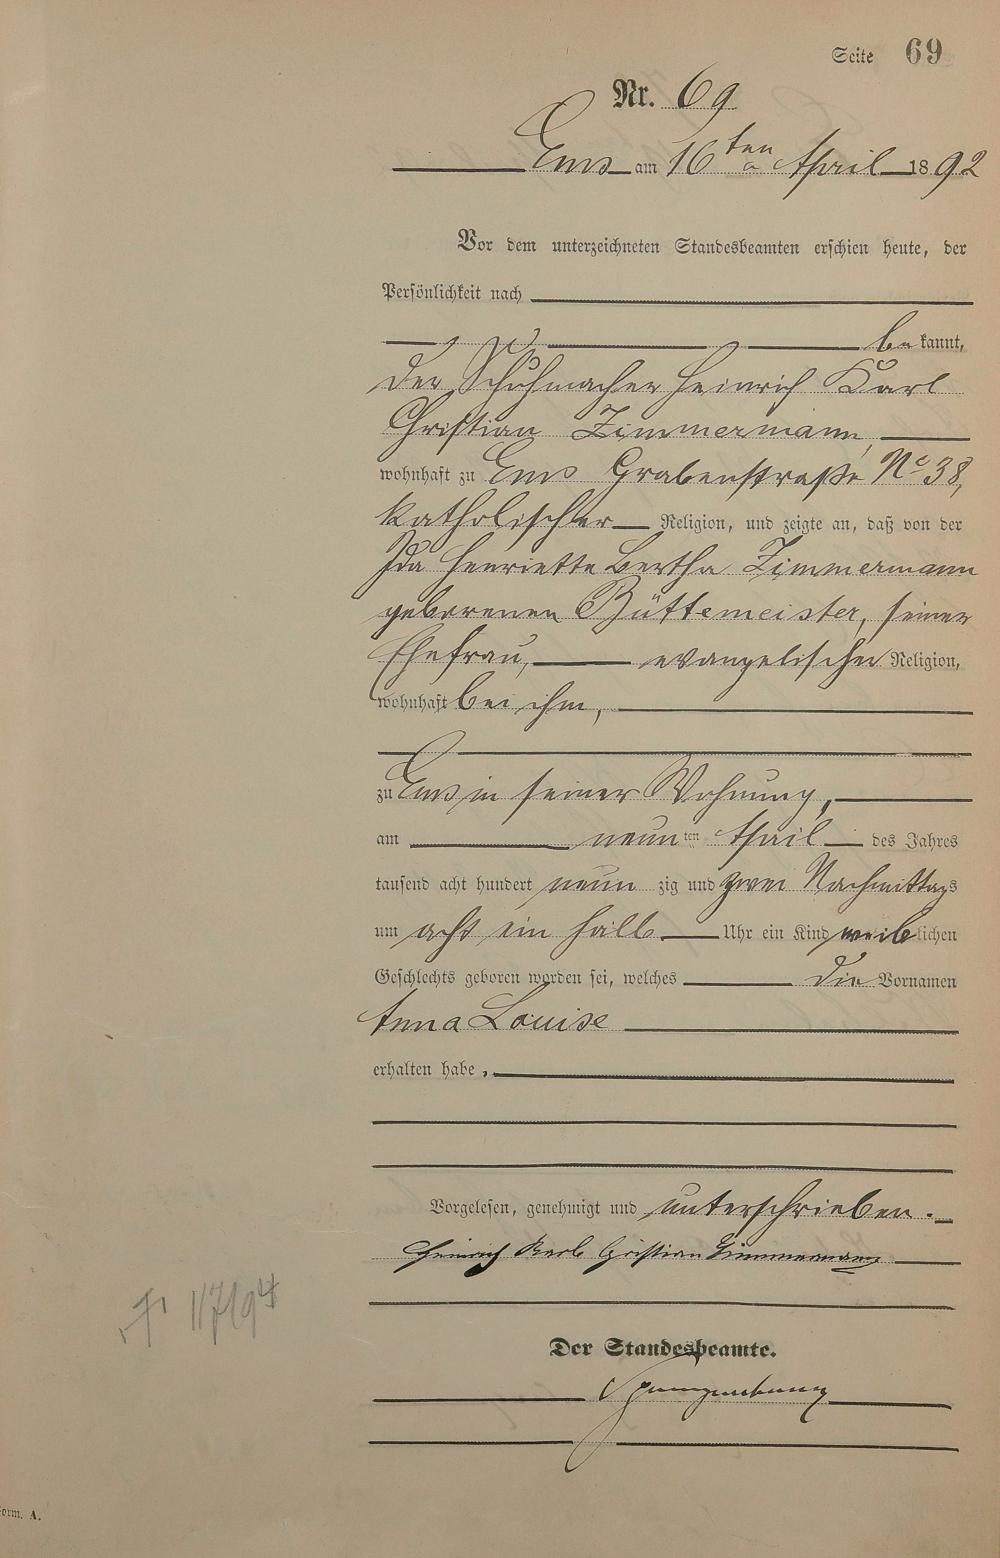 Seite 69
Nr. 69
Ems am 16ten April 1892
Vor dem unterzeichneten Standesbeamten erschien heute, der
Persönlichkeit nach
bekannt,
der Schuhmacher Heinrich Karl
Christian Zimmermann,
wohnhaft zu Ems Grabenstraße No 38,
katholischer Religion, und zeigte an, daß von der
Ida Henriette Bertha Zimmermann
geborenen Büttemeister, seiner
Ehefrau, evangelischer Religion,
wohnhaft bei ihm,
zu Ems in seiner Wohnung,
am neunten April des Jahres
tausend acht hundert neunzig und zwei Nachmittags
um acht ein halb Uhr ein Kind weiblichen
Geschlechts geboren worden sei, welches die Vornamen
Anna Louise
erhalten habe,
Vorgelesen, genehmigt und unterschrieben.
Heinrich Karl Christian Zimmermann
Der Standesbeamte.
Form. A.